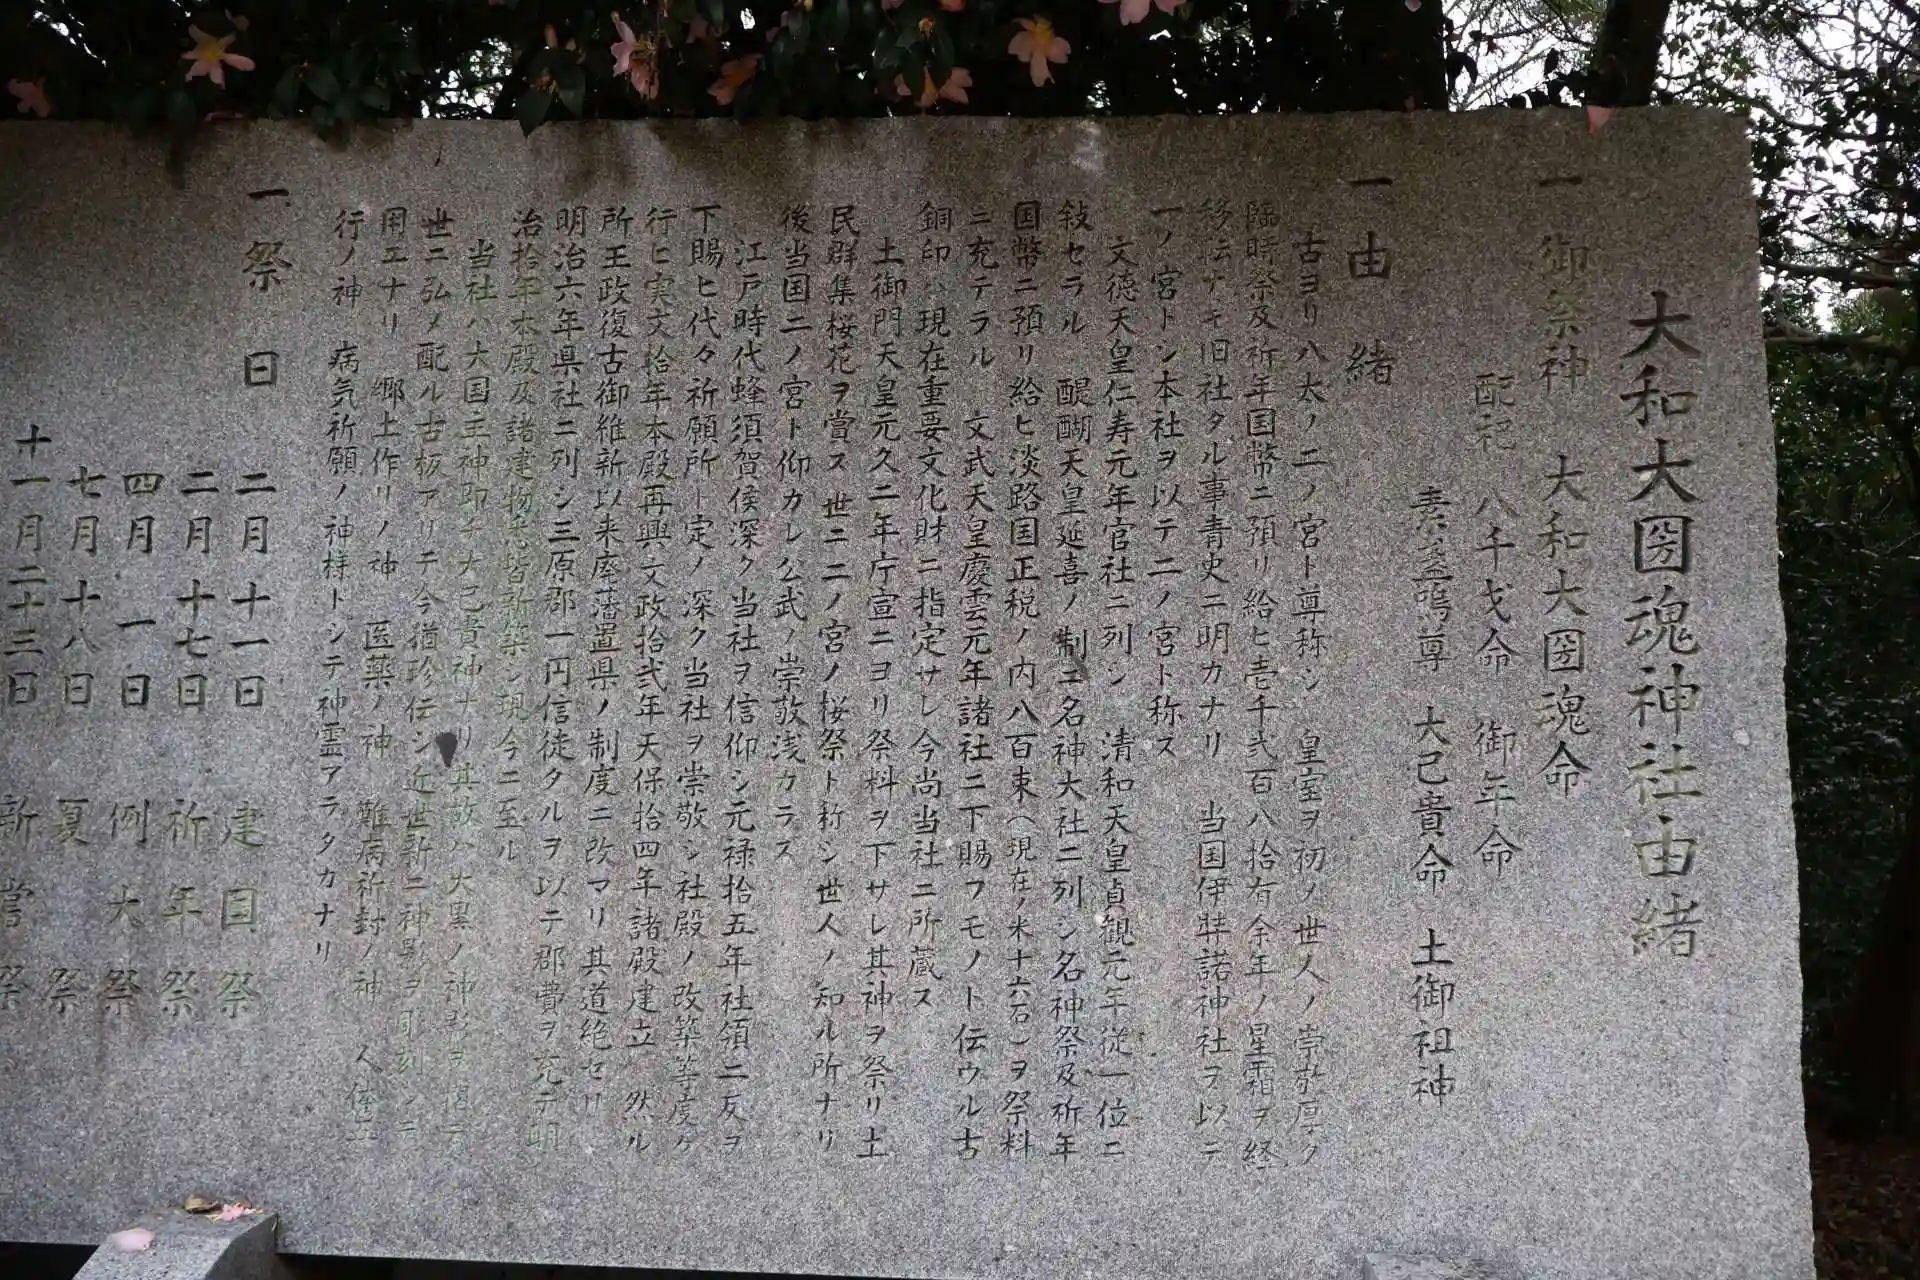 大和大圀魂神社由緒
一 御祭神 大和大圀魂命
配祀 八千戈命 御年命
素盞嗚尊 大己貴命 土御祖神
一 由緒
古ヨリ八太ノ二ノ宮ト尊称シ 皇室ヲ初メ世人ノ崇敬厚ク
臨時祭及祈年国幣ニ預リ給ヒ壱千弐百八拾有余年ノ星霜ヲ経
移転ナキ旧社タル事青史ニ明カナリ 当国伊弉諾神社ヲ以テ
一ノ宮トシ本社ヲ以テ二ノ宮ト称ス
文徳天皇仁寿元年官社ニ列シ 清和天皇貞観元年従一位ニ
敍セラル 醍醐天皇延喜ノ制ニ名神大社ニ列シ名神祭及祈年
国幣ニ預リ給ヒ淡路国正税ノ内八百束(現在ノ米十六石)ヲ祭料
ニ充テラル 文武天皇慶雲元年諸社ニ下賜フモノト伝ウル古
銅印ハ現在重要文化財ニ指定サレ今尚当社ニ所蔵ス
土御門天皇元久二年庁宣ニヨリ祭料ヲ下サレ其神ヲ祭リ土
民群集桜花ヲ賞ス 世ニ二ノ宮ノ桜祭ト称シ世人ノ知ル所ナリ
後当国二ノ宮ト仰カレ公武ノ崇敬浅カラス
江戸時代蜂須賀侯深ク当社ヲ信仰シ元禄拾五年社領二反ヲ
下賜ヒ代々祈願所ト定メ深ク当社ヲ崇敬シ社殿ノ改築等度々
行ヒ寛文拾年本殿再興文政拾弐年天保拾四年諸殿建立 然ル
所王政復古御維新以来廃藩置県ノ制度ニ改マリ其道絶セリ
明治六年県社ニ列シ三原郡一円信徒タルヲ以テ郡費ヲ充テ明
治拾年本殿及諸建物悉皆新築シ現今ニ至ル
当社ハ大国主神即チ大己貴神ナリ其故ハ大黒ノ神影ヲ
世ニ弘メ配ル古板アリテ今猶珍伝シ近世新ニ神影ヲ彫刻シテ
用エナリ 郷土作リノ神 医薬ノ神 難病祈封ノ神
行ノ神 病気祈願ノ神様トシテ神霊アラタカナリ
一 祭日
二月十一日 建国祭
二月十七日 祈年祭
四月一日 例大祭
七月十八日 夏祭
十一月二十三日 新嘗祭